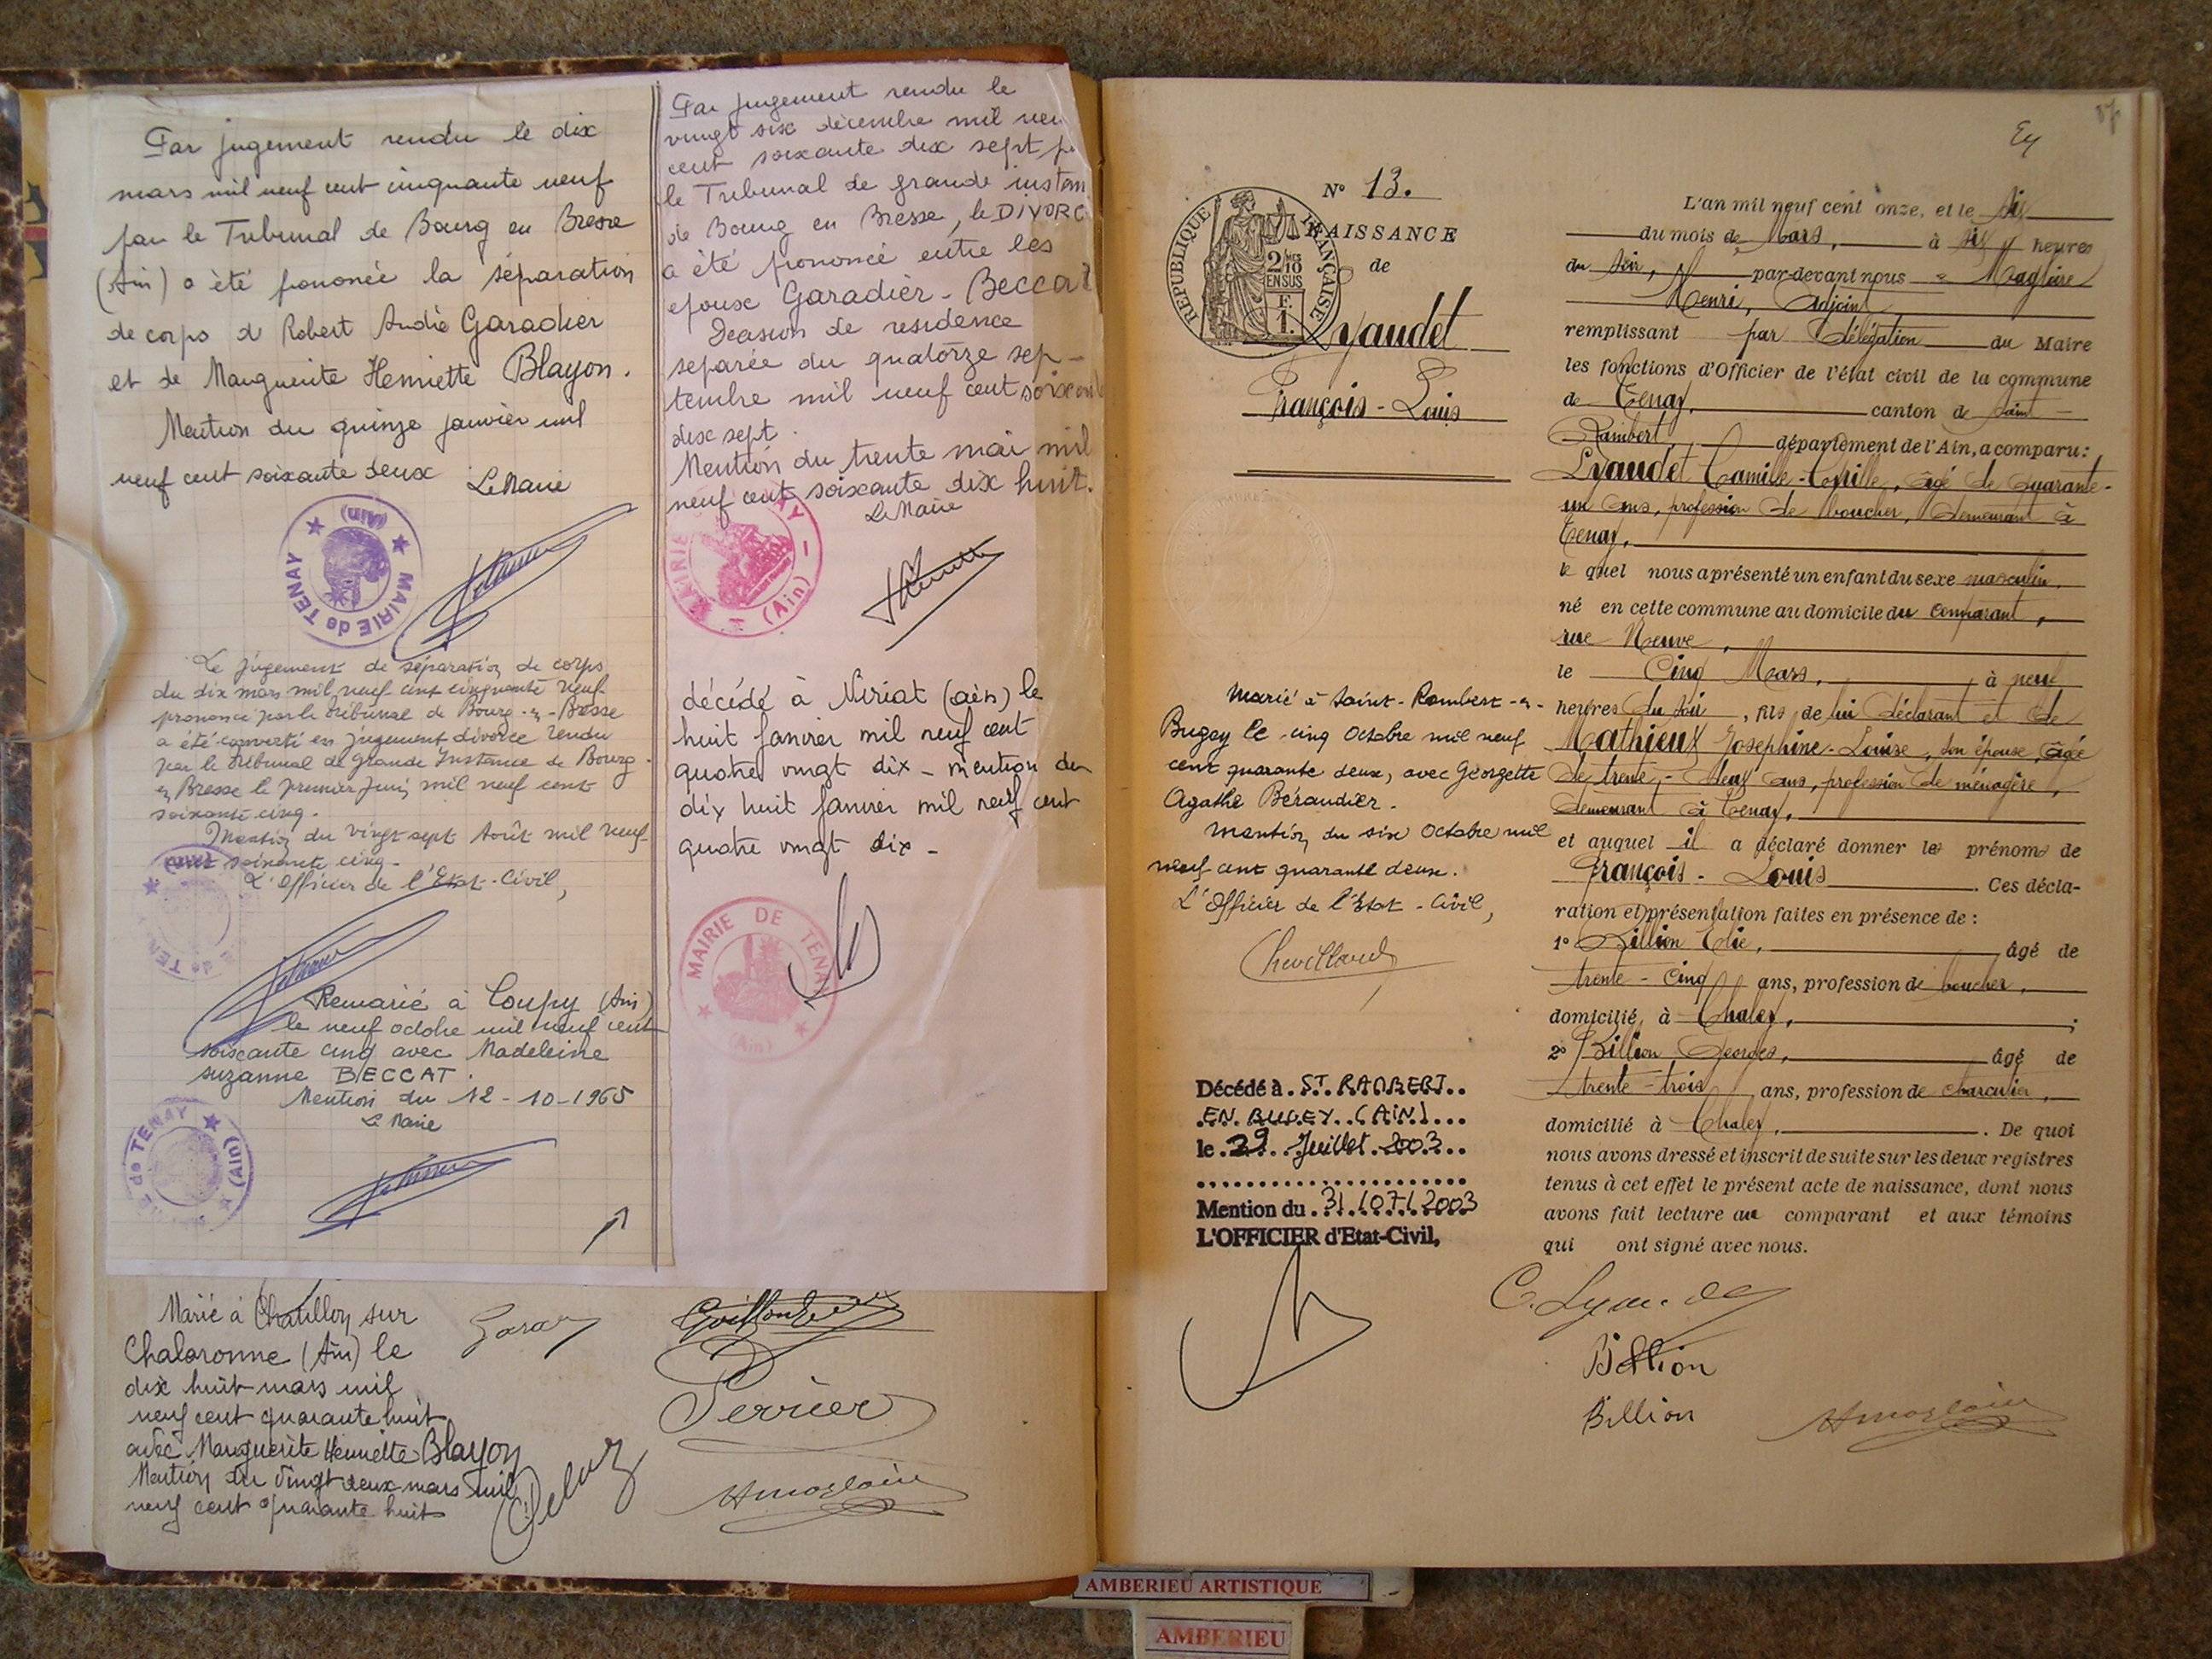 Par jugement rendu le dix
mars mil neuf cent cinquante neuf
par le Tribunal de Bourg en Bresse
(Ain) a été prononcée la séparation
de corps d Robert André Garadier
et de Marguerite Henriette Blayon.
Mention du quinze janvier mil
neuf cent soixante deux Le Maire
MAIRIE de TENAY
(Ain)
Le jugement de séparation de corps
du dix mars mil neuf cent cinquante neuf
prononcé par le tribunal de Bourg-en-Bresse
a été converti en jugement divorce rendu
par le tribunal de Grande Instance de Bourg-
en Bresse le premier Juin mil neuf cent
soixante cinq.
Mention du vingt sept Août mil neuf
cent soixante cinq.
L'Officier de l'Etat-Civil,
Remarié à Coupy (Ain)
le neuf octobre mil neuf cent
soixante cinq avec Madeleine
suzanne BECCAT.
Mention du 12-10-1965
Le Maire
de TENAY
(Ain)
Marié à Chatillon sur
Chalaronne (Ain) le
dix huit mars mil
neuf cent quarante huit
avec Marguerite Henriette Blayon
Mention du vingt deux mars mil
neuf cent quarante huit
Perrier
Par jugement rendu le
vingt six décembre mil neu
cent soixante dix sept p
le Tribunal de grande instan
de Bourg en Bresse, le DIVORC
a été prononcé entre les
epoux Garadier - Beccat
Decision de residence
separée du quatorze sep-
tembre mil neuf cent soixan
dix sept.
Mention du trente mai mil
neuf cent soixante dix huit.
Le Maire
MAIRIE
(Ain)
décédé à Viriat (ain) le
huit Janvier mil neuf cent
quatre vingt dix - mention du
dix huit Janvier mil neuf cent
quatre vingt dix -
MAIRIE DE TENAY
(Ain)
N° 13.
REPUBLIQUE FRANÇAISE
2/10 EN SUS
F.
1.
NAISSANCE
de
Lyaudet
François-Louis
Marié à Saint-Rambert-en-
Bugey le cinq Octobre mil neuf
cent quarante deux, avec Georgette
Agathe Béraudier.
Mention du six Octobre mil
neuf cent quarante deux.
L'Officier de l'Etat-Civil,
Chevillard
Décédé à ST. RAMBERT
EN BUGEY (AIN)
le 29 Juillet 2003
Mention du 31/07/2003
L'OFFICIER d'Etat-Civil,
87
L'an mil neuf cent onze, et le six
du mois de Mars, à six heures
du soir, par-devant nous
Henri, Adjoint
remplissant par délégation du Maire
les fonctions d'Officier de l'état civil de la commune
de Tenay, canton de Saint-
Rambert département de l'Ain, a comparu:
Lyaudet Camille-Achille, âgé de quarante-
un ans, profession de boucher, demeurant à
Tenay,
le quel nous a présenté un enfant du sexe masculin,
né en cette commune au domicile du comparant,
rue Neuve,
le Cinq Mars, à neuf
heures du soir, fils de lui déclarant et de
Mathieux Josephine-Louise, son épouse, âgée
de trente-deux ans, profession de ménagère,
demeurant à Tenay,
et auquel il a déclaré donner les prénoms de
François-Louis. Ces décla-
ration et présentation faites en présence de :
1° Billion Elie, âgé de
trente-cinq ans, profession de boucher,
domicilié à Chaley, ;
2° Billion Georges, âgé de
trente-trois ans, profession de charcutier,
domicilié à Chaley,. De quoi
nous avons dressé et inscrit de suite sur les deux registres
tenus à cet effet le présent acte de naissance, dont nous
avons fait lecture au comparant et aux témoins
qui ont signé avec nous.
C. Lyaudet
Billion
Billion
AMBERIEU ARTISTIQUE
AMBERIEU